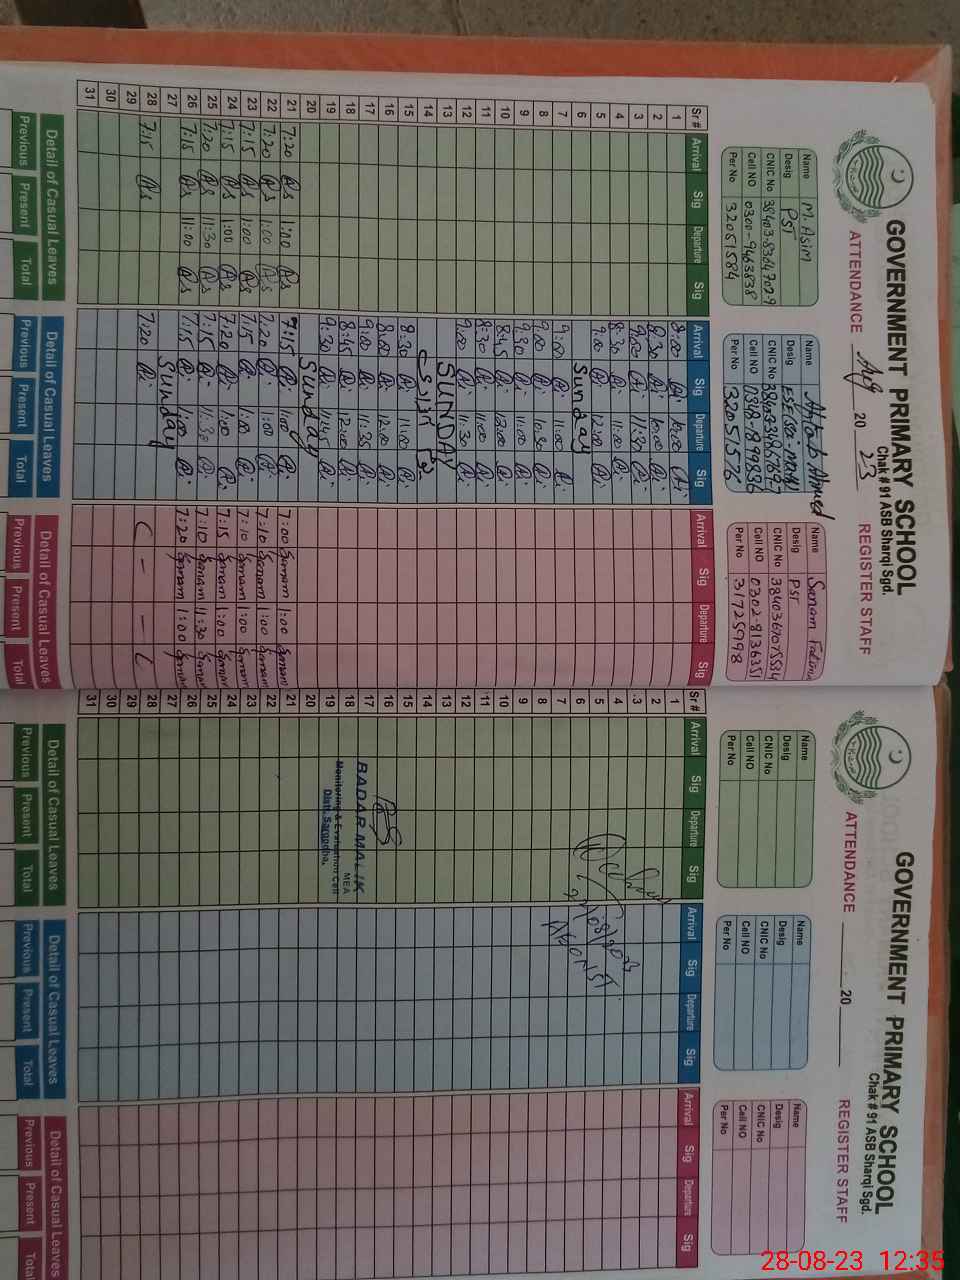 GOVERNMENT PRIMARY SCHOOL
Chak # 91 ASB Sharqi Sgd.
ATTENDANCE Aug 20 23 REGISTER STAFF
Name M. Asim
Desig PST
CNIC No
Cell NO 0300-9463838
Per No 32051584
Name Aftab Ahmed
Desig
CNIC No
Cell NO
Per No 32051576
Name Sanam Fatima
Desig PST
CNIC No
Cell NO 0302-8136351
Per No 31725998
Sr # Arrival Sig Departure Sig Arrival Sig Departure Sig Arrival Sig Departure Sig
1 8:00 10:00
2 8:30 10:00
3 9:00 11:30
4 8:30 11:00
5 9:00 12:00
6 Sunday
7 9:00 11:00
8 9:00 10:30
9 9:30 11:00
10 8:45 12:00
11 8:30 11:00
12 9:00 11:30
13 SUNDAY
14
15 8:30 11:00
16 8:00 12:00
17 9:00 11:35
18 8:45 12:00
19 9:30 11:45
20 Sunday
21 7:20 As 1:00 As 7:15 1:00 7:00 Sanam 1:00 Sanam
22 7:20 As 1:00 As 7:20 1:00 7:10 Sanam 1:00 Sanam
23 7:15 As 1:00 As 7:15 1:00 7:10 Sanam 1:00 Sanam
24 7:15 As 1:00 As 7:20 1:00 7:15 Sanam 1:00 Sanam
25 7:20 As 11:30 As 7:15 11:30 7:10 Sanam 11:30 Sanam
26 7:15 As 11:00 As 7:15 1:00 7:20 Sanam 1:00 Sanam
27 Sunday
28 7:15 As 7:20 C - - L
29
30
31
Detail of Casual Leaves Detail of Casual Leaves Detail of Casual Leaves
Previous Present Total Previous Present Total Previous Present Total
GOVERNMENT PRIMARY SCHOOL
Chak # 91 ASB Sharqi Sgd.
ATTENDANCE 20 REGISTER STAFF
Name
Desig
CNIC No
Cell NO
Per No
Name
Desig
CNIC No
Cell NO
Per No
Name
Desig
CNIC No
Cell NO
Per No
Sr # Arrival Sig Departure Sig Arrival Sig Departure Sig Arrival Sig Departure Sig
1
2
3
4
5
6
7
8
9
10
11
12
13
14
15
16
17
18
19
20
21
22
23
24
25
26
27
28
29
30
31
BADAR MALIK
MEA
Monitoring & Evaluation Cell
Distt. Sargodha.
Detail of Casual Leaves Detail of Casual Leaves Detail of Casual Leaves
Previous Present Total Previous Present Total Previous Present Total
28-08-23 12:35